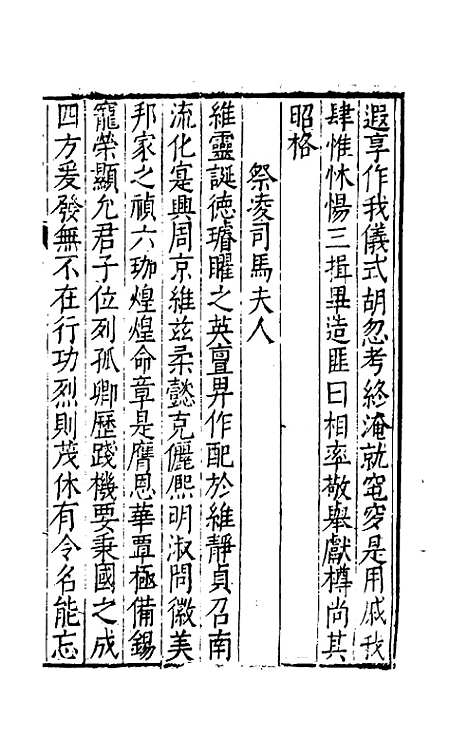 遐享作我儀式胡忽考終淹就窀穸是用戚我
肆惟怵惕三揖畢造匪曰相率敬舉獻樽尚其
昭格
祭凌司馬夫人
維靈誕德璿曜之英亶畀作配於維靜貞召南
流化寔興周京維茲柔懿克儷熈明淑問徽美
邦家之禎六珈煌煌命章是膺恩華覃極備錫
寵榮顯允君子位列孤卿歷踐機要秉國之成
四方爰發無不在行功烈則茂休有令名能忘